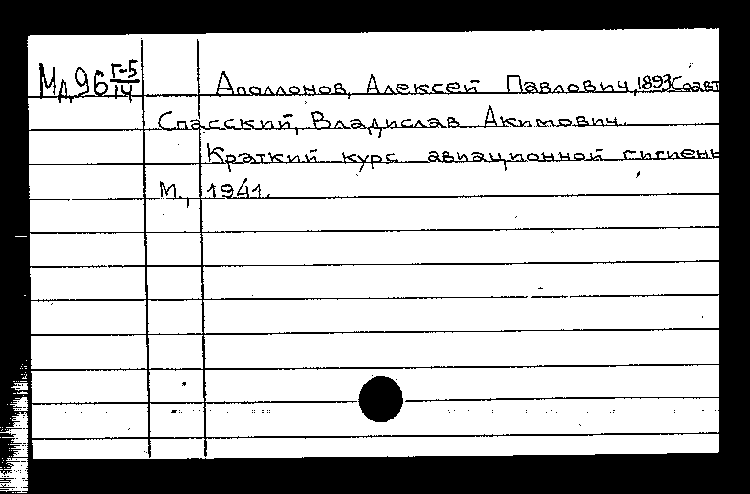 Мд96 Г-5/14
Аполлонов, Алексей Павлович, 1893 Соавт
Спасский, Владислав Акимович.
Краткий курс авиационной гигиены
М., 1941.